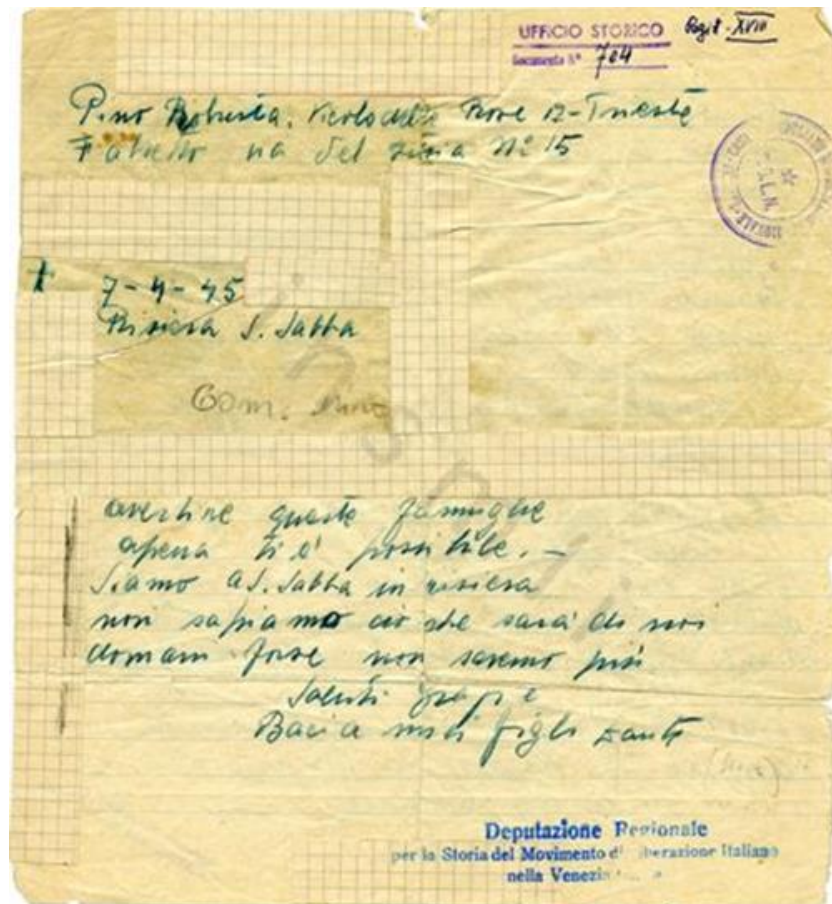 UFFICIO STORICO
Documento N° 704
XVIII
Pino Robusta. Vicolo delle Rose 12 - Trieste
via del N° 15
7-4-45
Risiera S. Sabba
Com.
avertire queste famiglie
apena ti è possibile. -
Siamo a S. Sabba in risiera
non sapiamo ciò che sarà di noi
domani forse non saremo più
Saluti grazie
Bacia miei figli
Deputazione Regionale
per la Storia del Movimento di Liberazione Italiano
nella Venezia